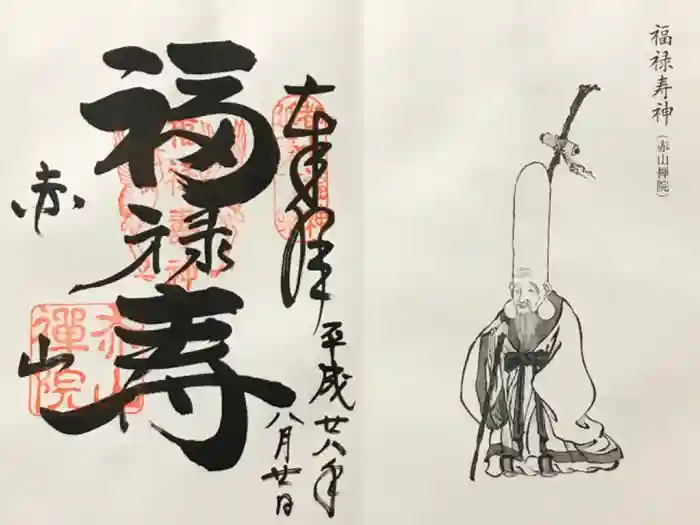 福禄寿神
(赤山禅院)
奉拝
平成廿八年
八月廿日
福禄寿
赤山
赤山
禅院